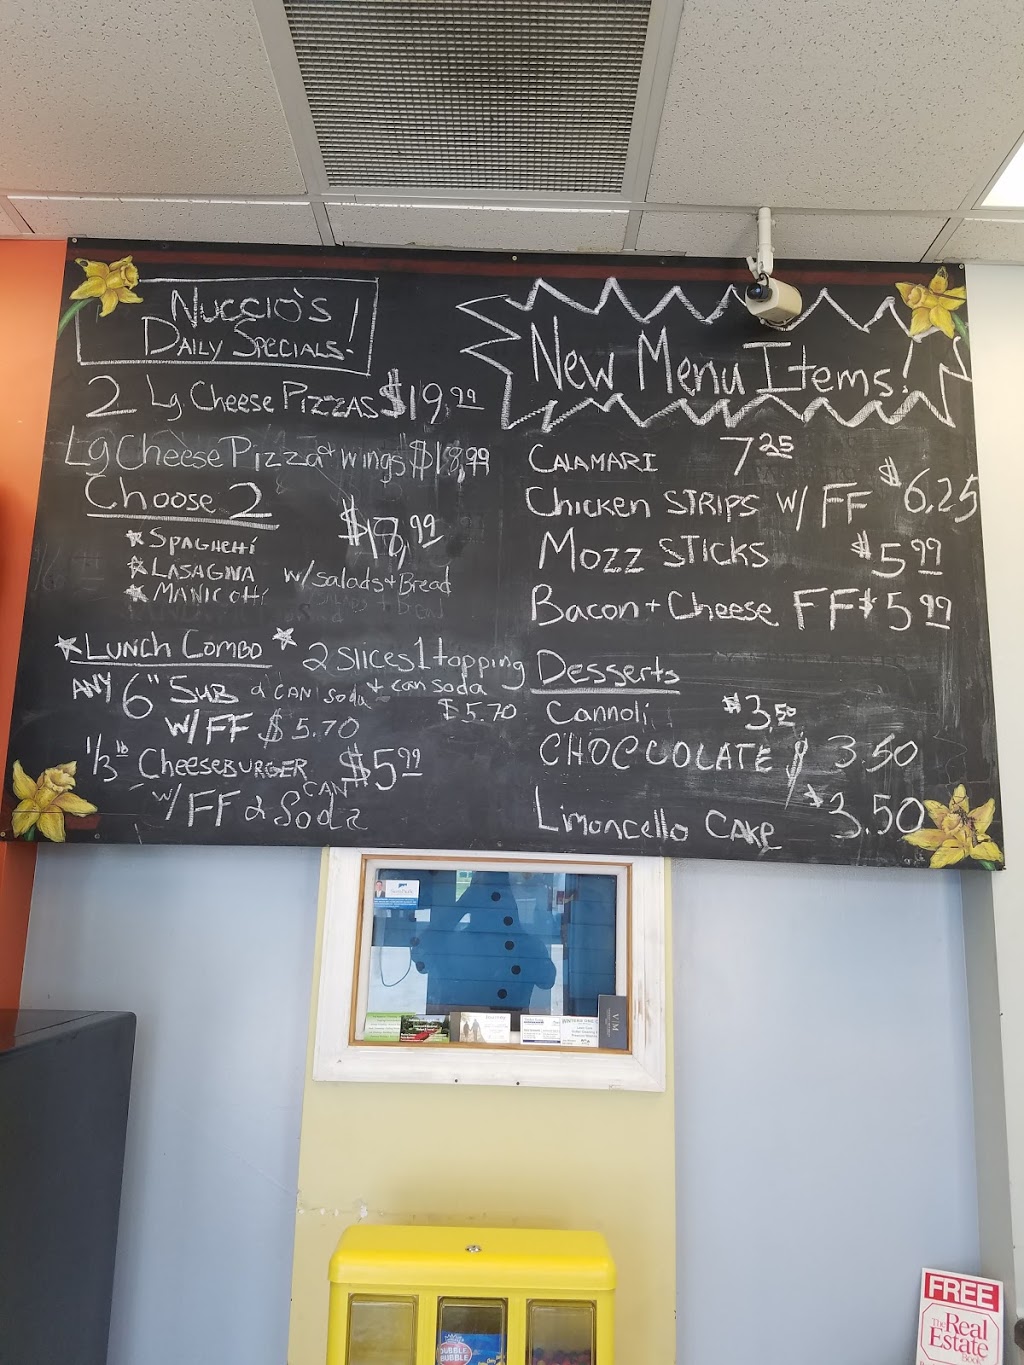 Nuccio's
Daily Specials!
2 Lg. Cheese Pizzas $19.99
Lg Cheese Pizza + wings $18.99
Choose 2
* Spaghetti
$18.99
* Lasagna w/salads + Bread
* Manicotti
* Lunch Combo *
2 slices 1 topping
+ can soda
$5.70
Any 6" Sub & can soda
w/FF $5.70
1/3 lb Cheeseburger $5.99
w/FF & CAN Soda
New Menu Items!
Calamari 7.25
Chicken Strips w/ FF $6.25
Mozz Sticks $5.99
Bacon + Cheese FF $5.99
Desserts
Cannoli $3.50
CHOCCOLATE $3.50
Limoncello Cake $3.50
DUBBLE
BUBBLE
FREE
The Real
Estate
Book